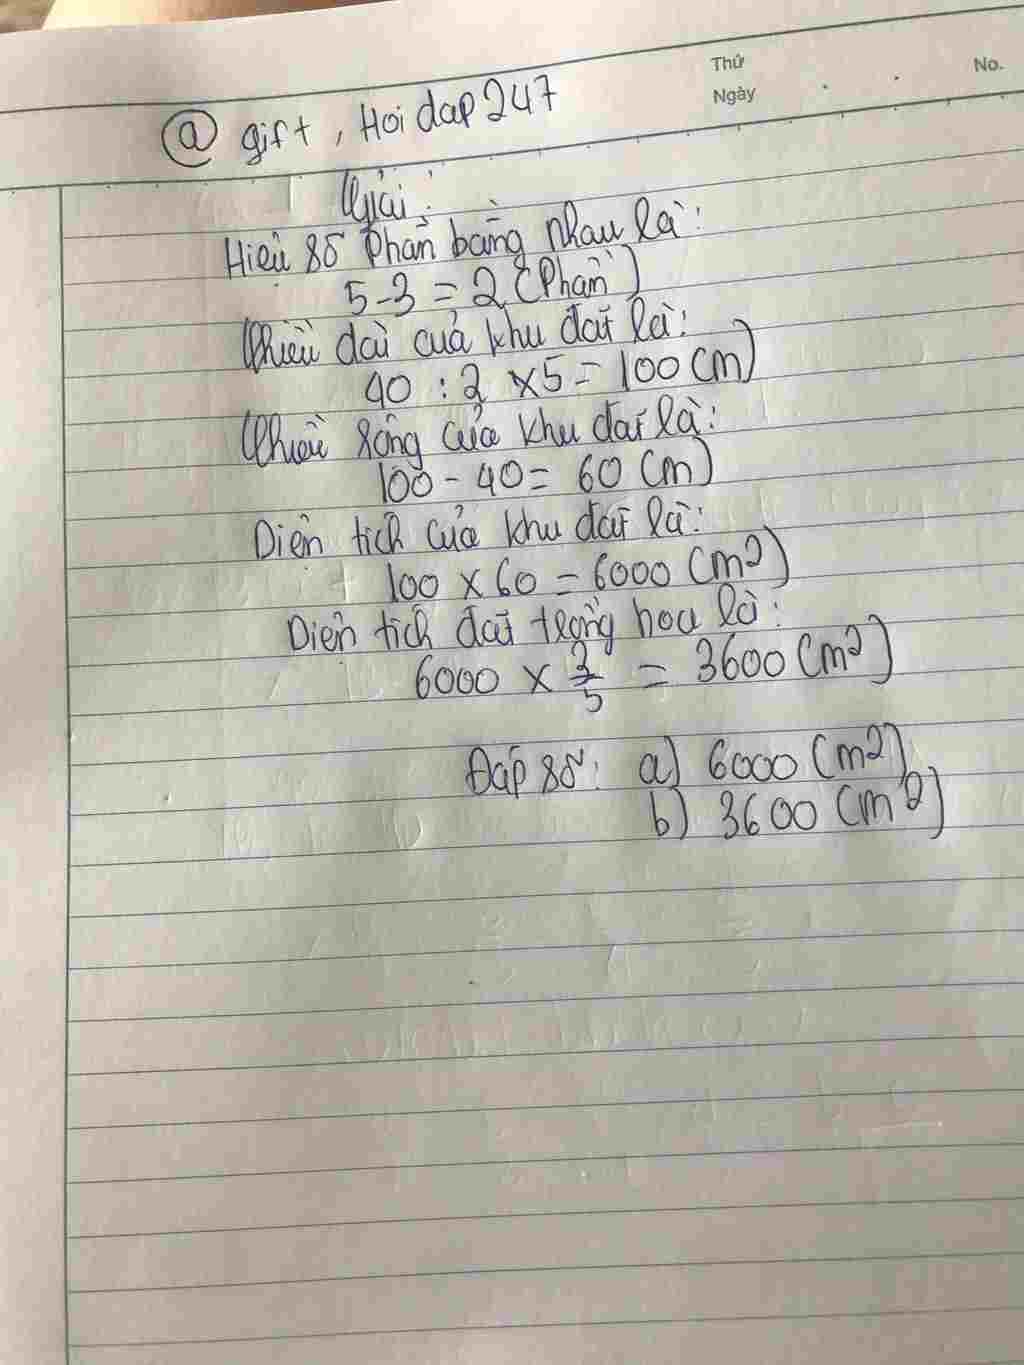 Thứ
No.
Ngày
@ gift, Hoi dap 247
Giải:
Hiệu số phần bằng nhau là:
5-3 = 2 (Phần)
Chiều dài của khu đất là:
40 : 2 x 5 = 100 (m)
Chiều rộng của khu đất là:
100 - 40 = 60 (m)
Diện tích của khu đất là:
100 x 60 = 6000 (m2)
Diện tích đất trồng hoa là:
6000 x 3/5 = 3600 (m2)
Đáp số: a) 6000 (m2)
b) 3600 (m2)